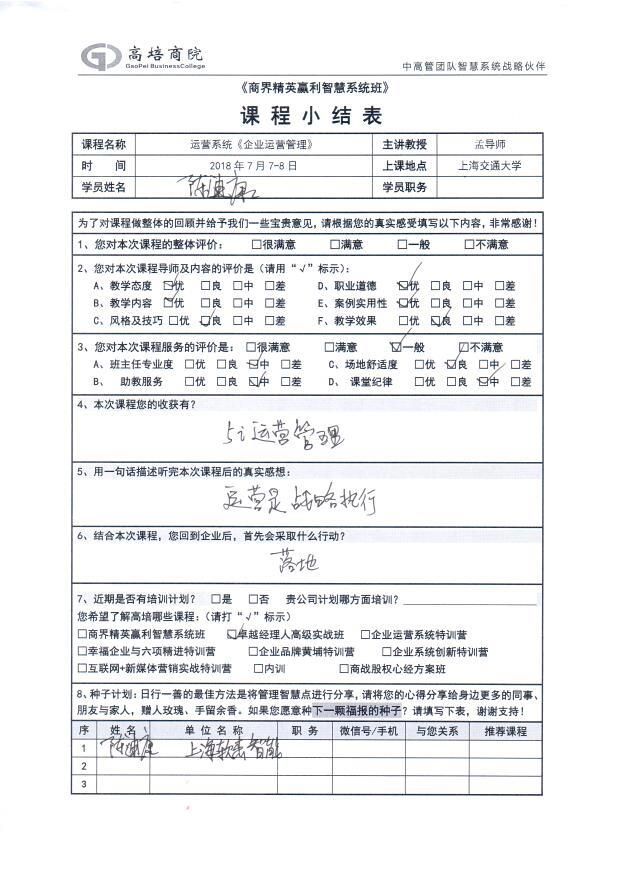 高培商院
GaoPei BusinessCollege
中高管团队智慧系统战略伙伴
《商界精英赢利智慧系统班》
课程小结表
课程名称 运营系统《企业运营管理》 主讲教授 孟导师
时 间 2018年7月7-8日 上课地点 上海交通大学
学员姓名 学员职务
为了对课程做整体的回顾并给予我们一些宝贵意见,请根据您的真实感受填写以下内容,非常感谢!
1、您对本次课程的整体评价: □很满意 □满意 □一般 □不满意
2、您对本次课程导师及内容的评价是(请用“√”标示):
A、教学态度 ☑优 □良 □中 □差 D、职业道德 ☑优 □良 □中 □差
B、教学内容 ☑优 □良 □中 □差 E、案例实用性 ☑优 □良 □中 □差
C、风格及技巧 □优 ☑良 □中 □差 F、教学效果 □优 ☑良 □中 □差
3、您对本次课程服务的评价是: □很满意 □满意 ☑一般 □不满意
A、班主任专业度 □优 □良 ☑中 □差 C、场地舒适度 □优 ☑良 □中 □差
B、 助教服务 □优 □良 ☑中 □差 D、课堂纪律 □优 □良 ☑中 □差
4、本次课程您的收获有?
5i运营管理
5、用一句话描述听完本次课程后的真实感想:
运营是战略执行
6、结合本次课程,您回到企业后,首先会采取什么行动?
落地
7、近期是否有培训计划? □是 □否 贵公司计划哪方面培训?
您希望了解高培哪些课程:(请打“√”标示)
□商界精英赢利智慧系统班 ☑卓越经理人高级实战班 □企业运营系统特训营
□幸福企业与六项精进特训营 □企业品牌黄埔特训营 □企业系统创新特训营
□互联网+新媒体营销实战特训营 □内训 □商战股权心经方案班
8、种子计划:日行一善的最佳方法是将管理智慧点进行分享,请将您的心得分享给身边更多的同事、
朋友与家人,赠人玫瑰、手留余香。如果您愿意种下一颗福报的种子?请填写下表,谢谢支持!
序 姓名 单位名称 职务 微信号/手机 与您关系 推荐课程
1 上海 智能
2
3